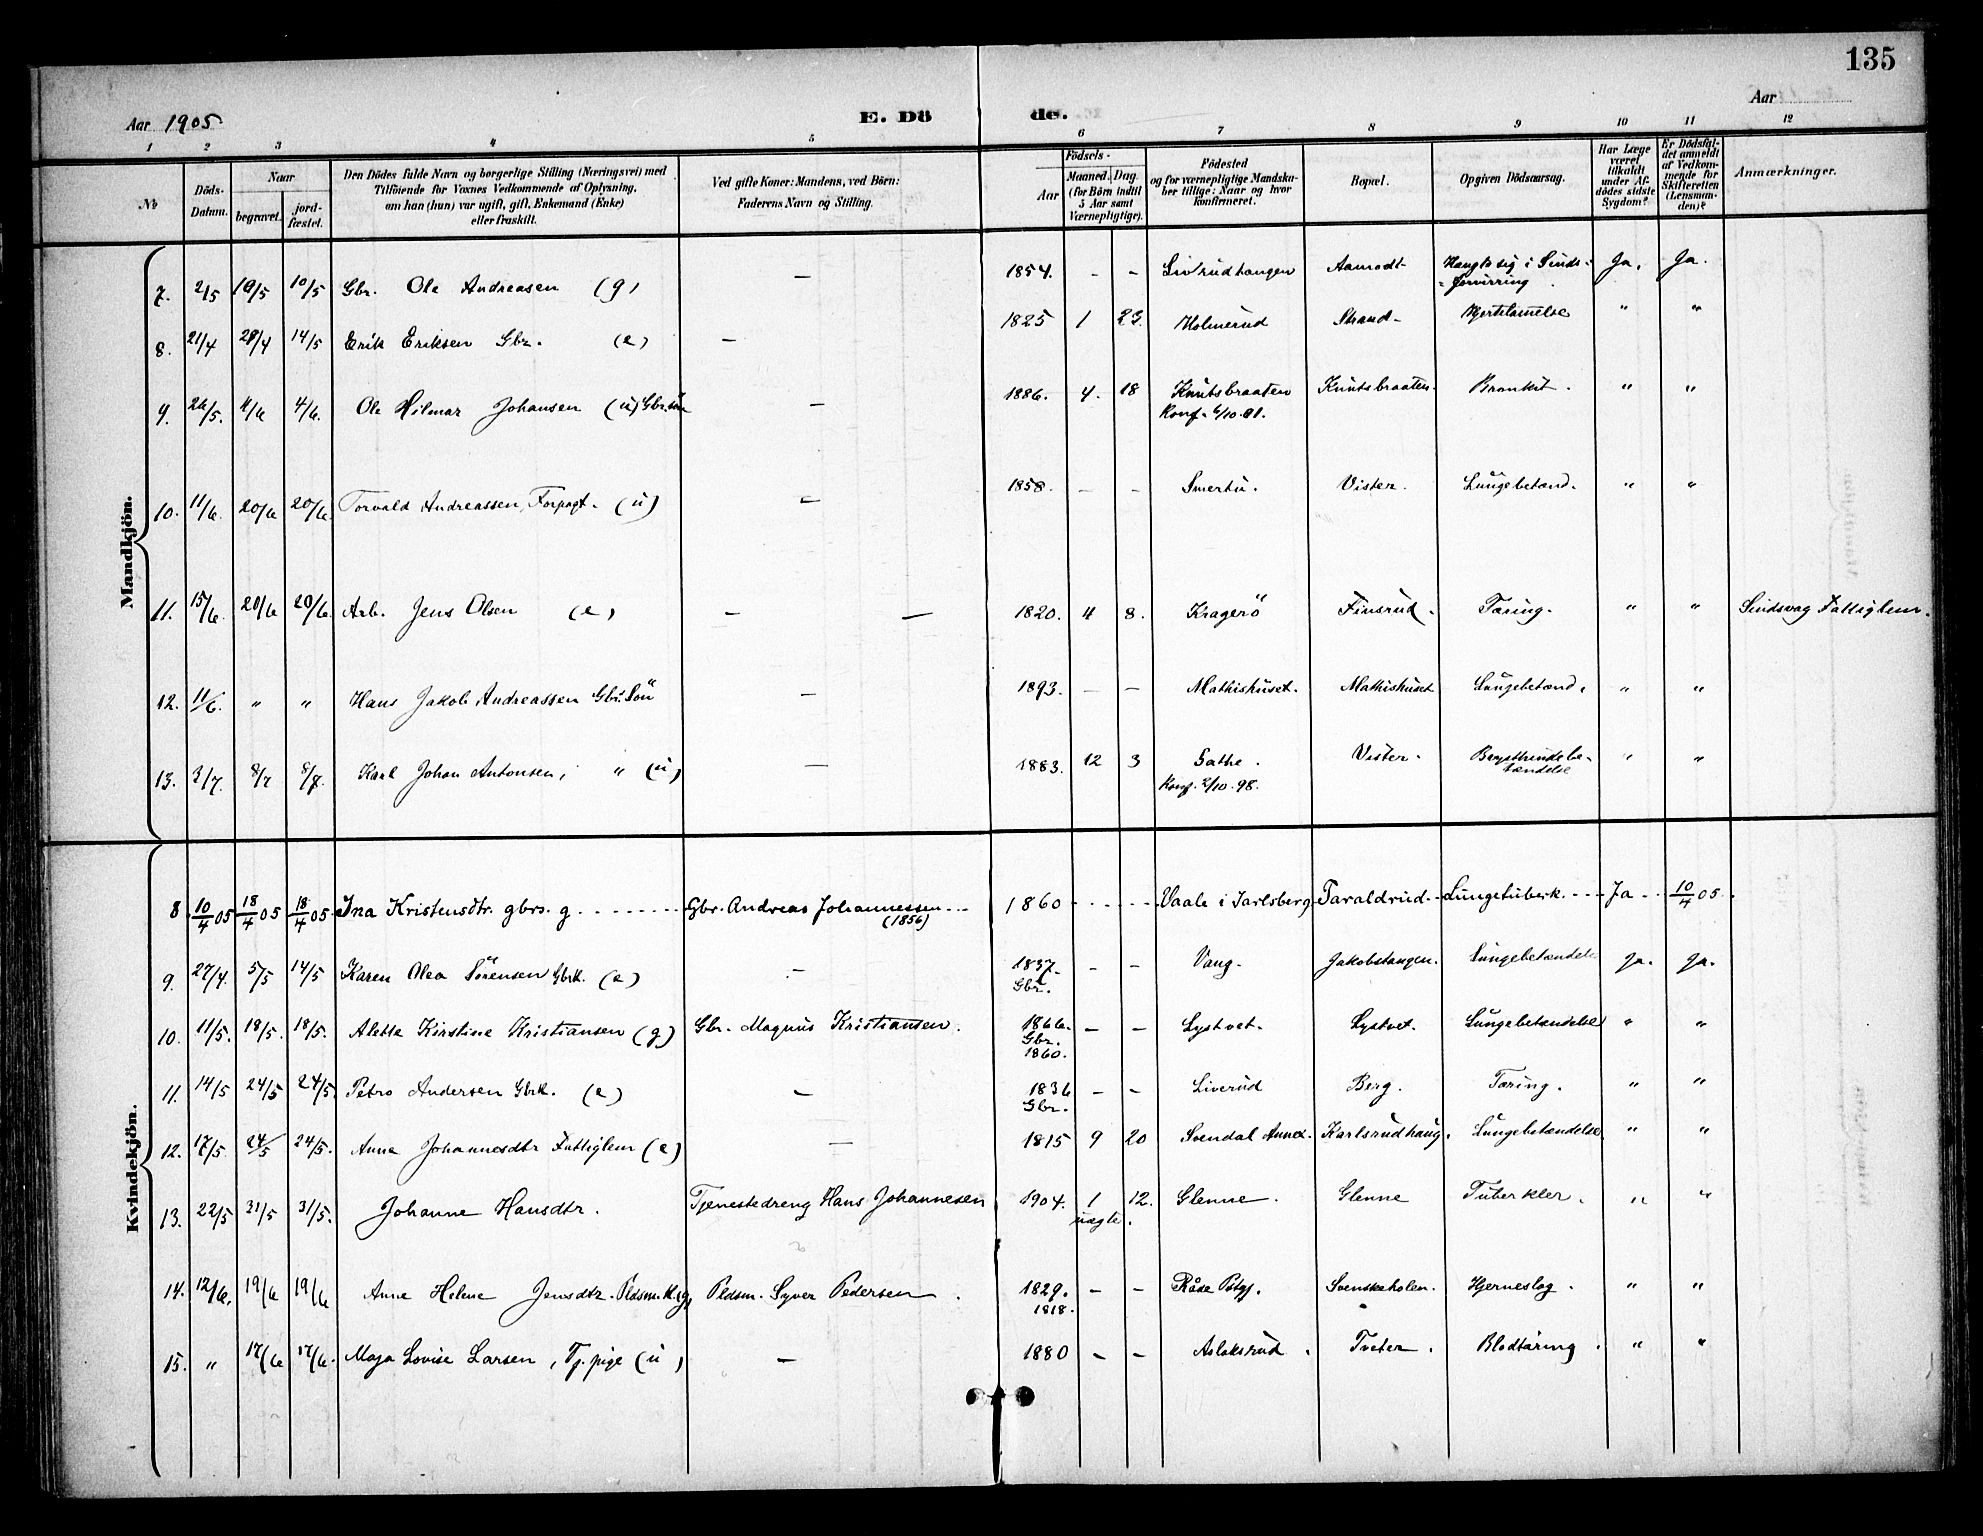 135
Aar 1905 E. Dö de. Aar
1 2 3 4 5 6 7 8 9 10 11 12
No
Döds-Datum.
Naar
begravet.
jord-fæstet.
Den Dödes fulde Navn og borgerlige Stilling (Næringsvei) med
Tilföiende for Voxnes Vedkommende af Oplysning,
om han (hun) var ugift, gift, Enkemand (Enke)
eller fraskilt.
Ved gifte Koner: Mandens, ved Börn:
Faderens Navn og Stilling.
Födsels-
Aar
Maaned. Dag.
(for Börn indtil
5 Aar samt
Værnepligtige).
Födested
og for værnepligtige Mandska-
ber tillige: Naar og hvor
konfirmeret.
Bopæl.
Opgiven Dödsaarsag.
Har Læge
været
tilkaldt
under Af-
dödes sidste
Sygdom?
Er Dödsfal-
det anmeldt
af Vedkom-
mende for
Skifteretten
(Lensman-
den)?
Anmærkninger.
Mandkjön.
7. 2/5 10/5 10/5 Gbr. Ole Andreasen (g) — 1854. – – Livrudtangen Aamodt Hængt sig i Sinds-
forvirring Ja. Ja.
8. 21/4 28/4 14/5 Erik Eriksen Gbr. (e) — 1825 1 23. Holmerud Strand Hjertelamelse " "
9. 26/5. 4/6 4/6. Ole Hilmar Johansen (u) Gbr.sön — 1886. 4. 18 Knutsbraaten Knutsbraaten. Bronkit. " "
Konf. 6/10.01.
10. 11/6. 20/6 20/6. Torvald Andreassen, Forpagt. (u) — 1858. – – Smertu. Vister. Lungebetænd. " "
11. 15/6. 20/6 20/6. Arb. Jens Olsen (e) — — 1820. 4 8. Kragerö Finsrud. Tæring. " " Sindsvag Fattiglem.
12. 11/6. " " Hans Jakob Andreassen Gbr. Sön — 1893. – – Mathishuset. Mathishuset Lungebetænd. " "
13. 3/7. 8/7 8/7. Karl Johan Antonsen, " (u) — 1883. 12 3 Sathe. Vister. Brysthindebe-
tændelse " "
Konf. 2/10.98.
Kvindekjön.
8 10/4 05 18/4 05 18/4 05 Ina Kristensdtr. gbrs. g. Gbr. Andreas Johannessen
(1856) 1860 Vaale i Jarlsberg Taraldrud Lungetuberk. Ja 10/4 05.
9. 27/4. 5/5 14/5 Karen Olea Sörensen Gbrk. (e) — 1837. – – Vang. Jakobstangen. Lungebetændelse Ja. Ja.
Gbr.
10. 11/5. 18/5. 18/5. Alette Kirstine Kristiansen (g) Gbr. Magnus Kristiansen. 1866. – – Lystvet. Lystvet. Lungebetændelse " "
Gbr.
1860.
11. 14/5 24/5 24/5. Petro Andersen Gbrk. (e) — 1836 – – Liverud Berg. Tæring. " "
Gbr.
12. 17/5. 24/5 24/5. Anne Johannesdtr Fattiglem (e) — 1815 9 20 Svendal Annex. Karlsrudhaug. Lungebetændelse. " "
13. 22/5 31/5 31/5. Johanne Hansdtr. Tjenestedreng Hans Johannesen 1904. 1 12. Glenne. Glenne Tuberkler. " "
uægte.
14. 12/6. 19/6 19/6 Anne Helene Jensdtr. Pldsm.k. g, Pldsm. Syver Pedersen. 1829. – – Råde Pstgj. Svenskeholen. Hjerneslag. " "
1818.
15. " 17/6 17/6. Maja Lovise Larsen, Tj. pige (u) — 1880 – – Aslaksrud Tveter. Blodtæring. " "